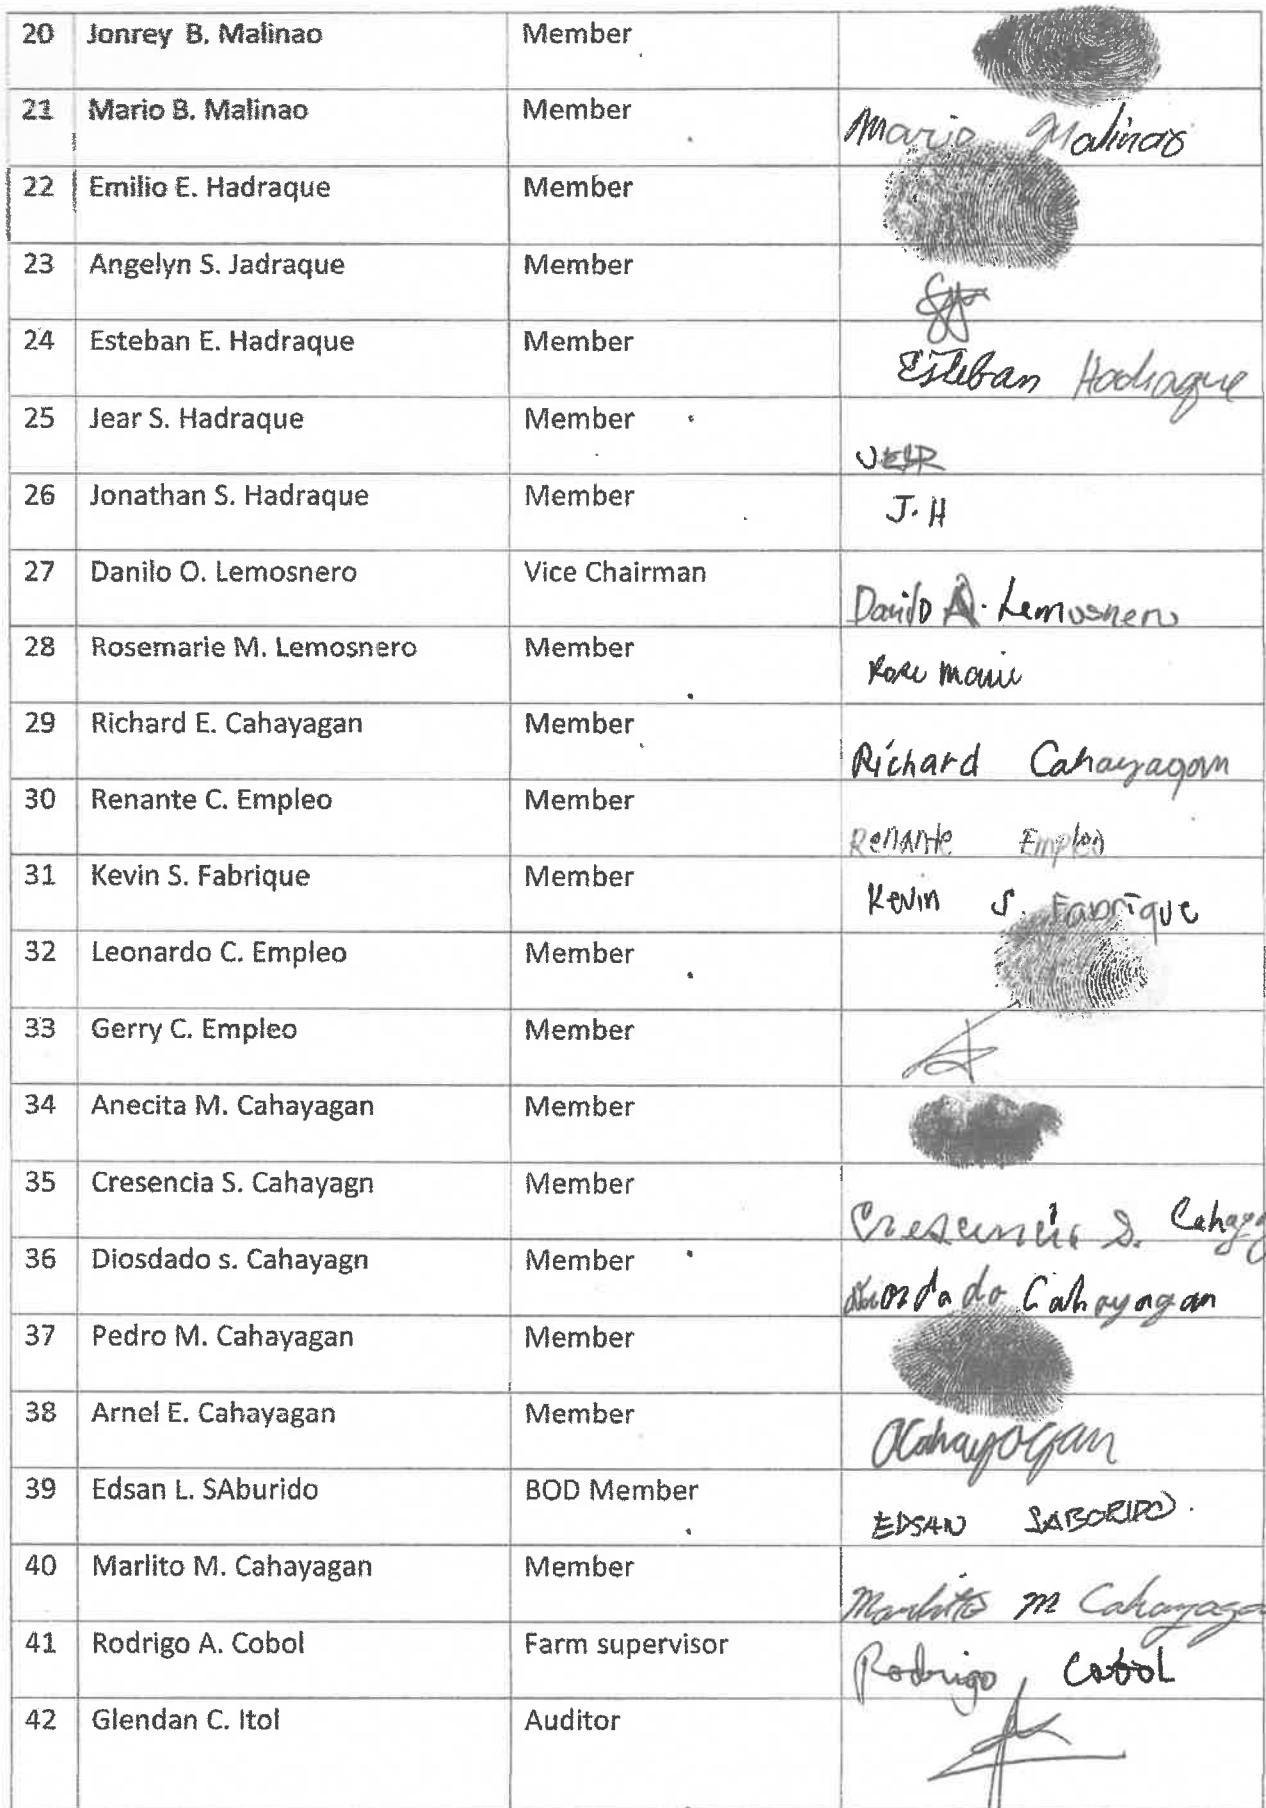 20 Jonrey B. Malinao Member
21 Mario B. Malinao Member Mario Malinao
22 Emilio E. Hadraque Member
23 Angelyn S. Jadraque Member
24 Esteban E. Hadraque Member Esteban Hadraque
25 Jear S. Hadraque Member
26 Jonathan S. Hadraque Member J. H
27 Danilo O. Lemosnero Vice Chairman Danilo Lemosnero
28 Rosemarie M. Lemosnero Member Rose Marie
29 Richard E. Cahayagan Member Richard Cahayagan
30 Renante C. Empleo Member Renante Empleo
31 Kevin S. Fabrique Member Kevin S. Fabrique
32 Leonardo C. Empleo Member
33 Gerry C. Empleo Member
34 Anecita M. Cahayagan Member
35 Cresencia S. Cahayagn Member Cresencia S. Cahayag
36 Diosdado s. Cahayagn Member Cahayagan
37 Pedro M. Cahayagan Member
38 Arnel E. Cahayagan Member ACahayagan
39 Edsan L. SAburido BOD Member EDSAN SABORIDO.
40 Marlito M. Cahayagan Member Marlito M Cahayaga
41 Rodrigo A. Cobol Farm supervisor Rodrigo Cobol
42 Glendan C. Itol Auditor